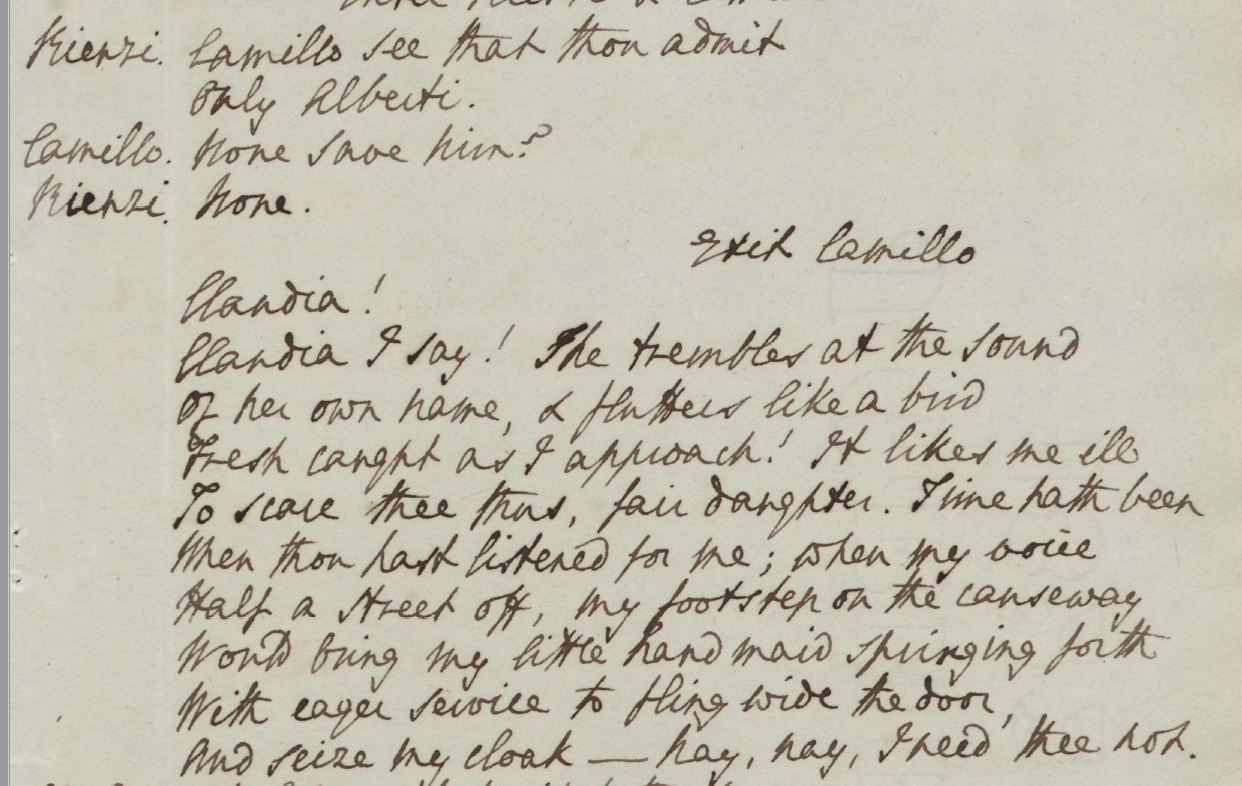 Rienzi. Camillo see that thou admit
Only Alberti.
Camillo. None save him?
Rienzi. None.
Exit Camillo
Claudia!
Claudia I say! She trembles at the sound
Of her own name, & flutters like a bird
Fresh caught as I approach! It likes me ill
To scare thee thus, fair daughter. Time hath been
When thou hast listened for me; when my voice
Half a street off, my footstep on the causeway
Would bring my little handmaid springing forth
With eager service to fling wide the door,
And seize my cloak — nay, nay, I need thee not.